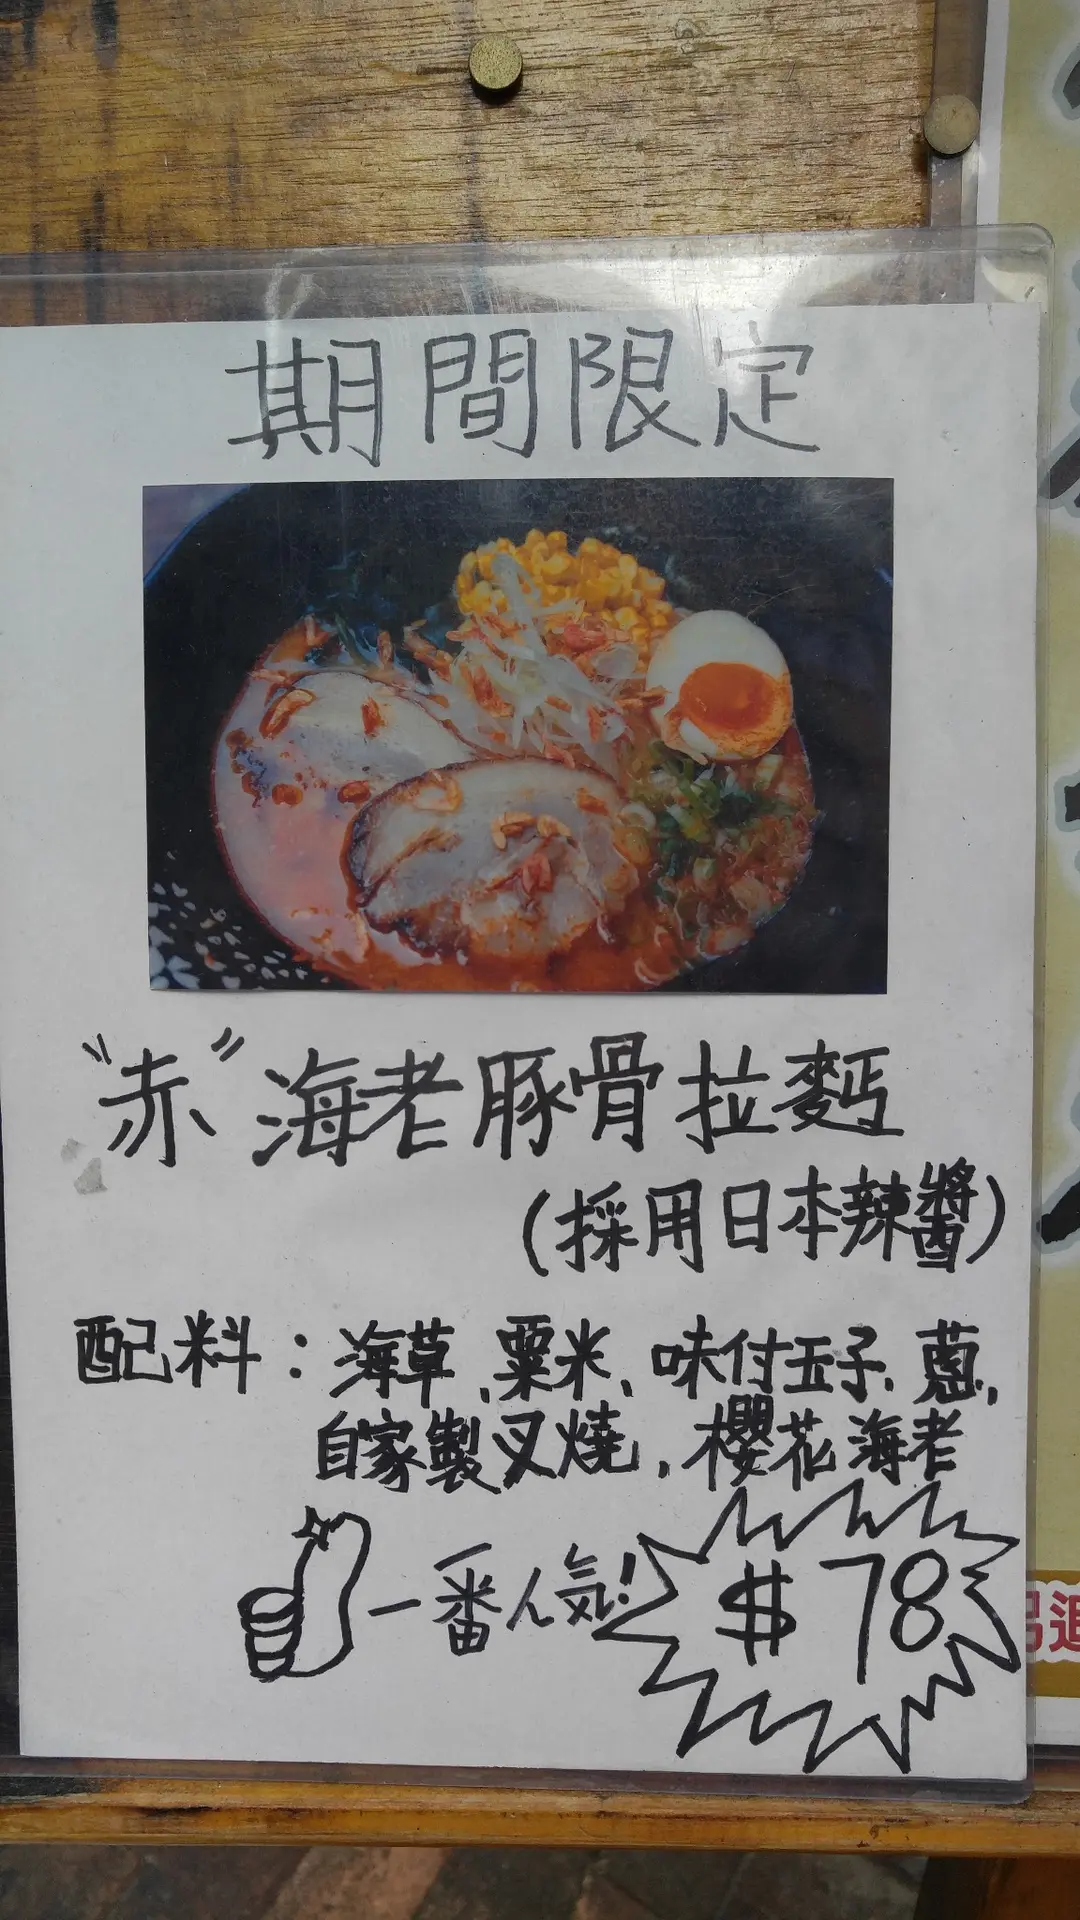 期間限定
"赤"海老豚骨拉麵
(採用日本辣醬)
配料：海草、粟米、味付玉子、蔥、
自家製叉燒、櫻花海老
一番人気!
$78